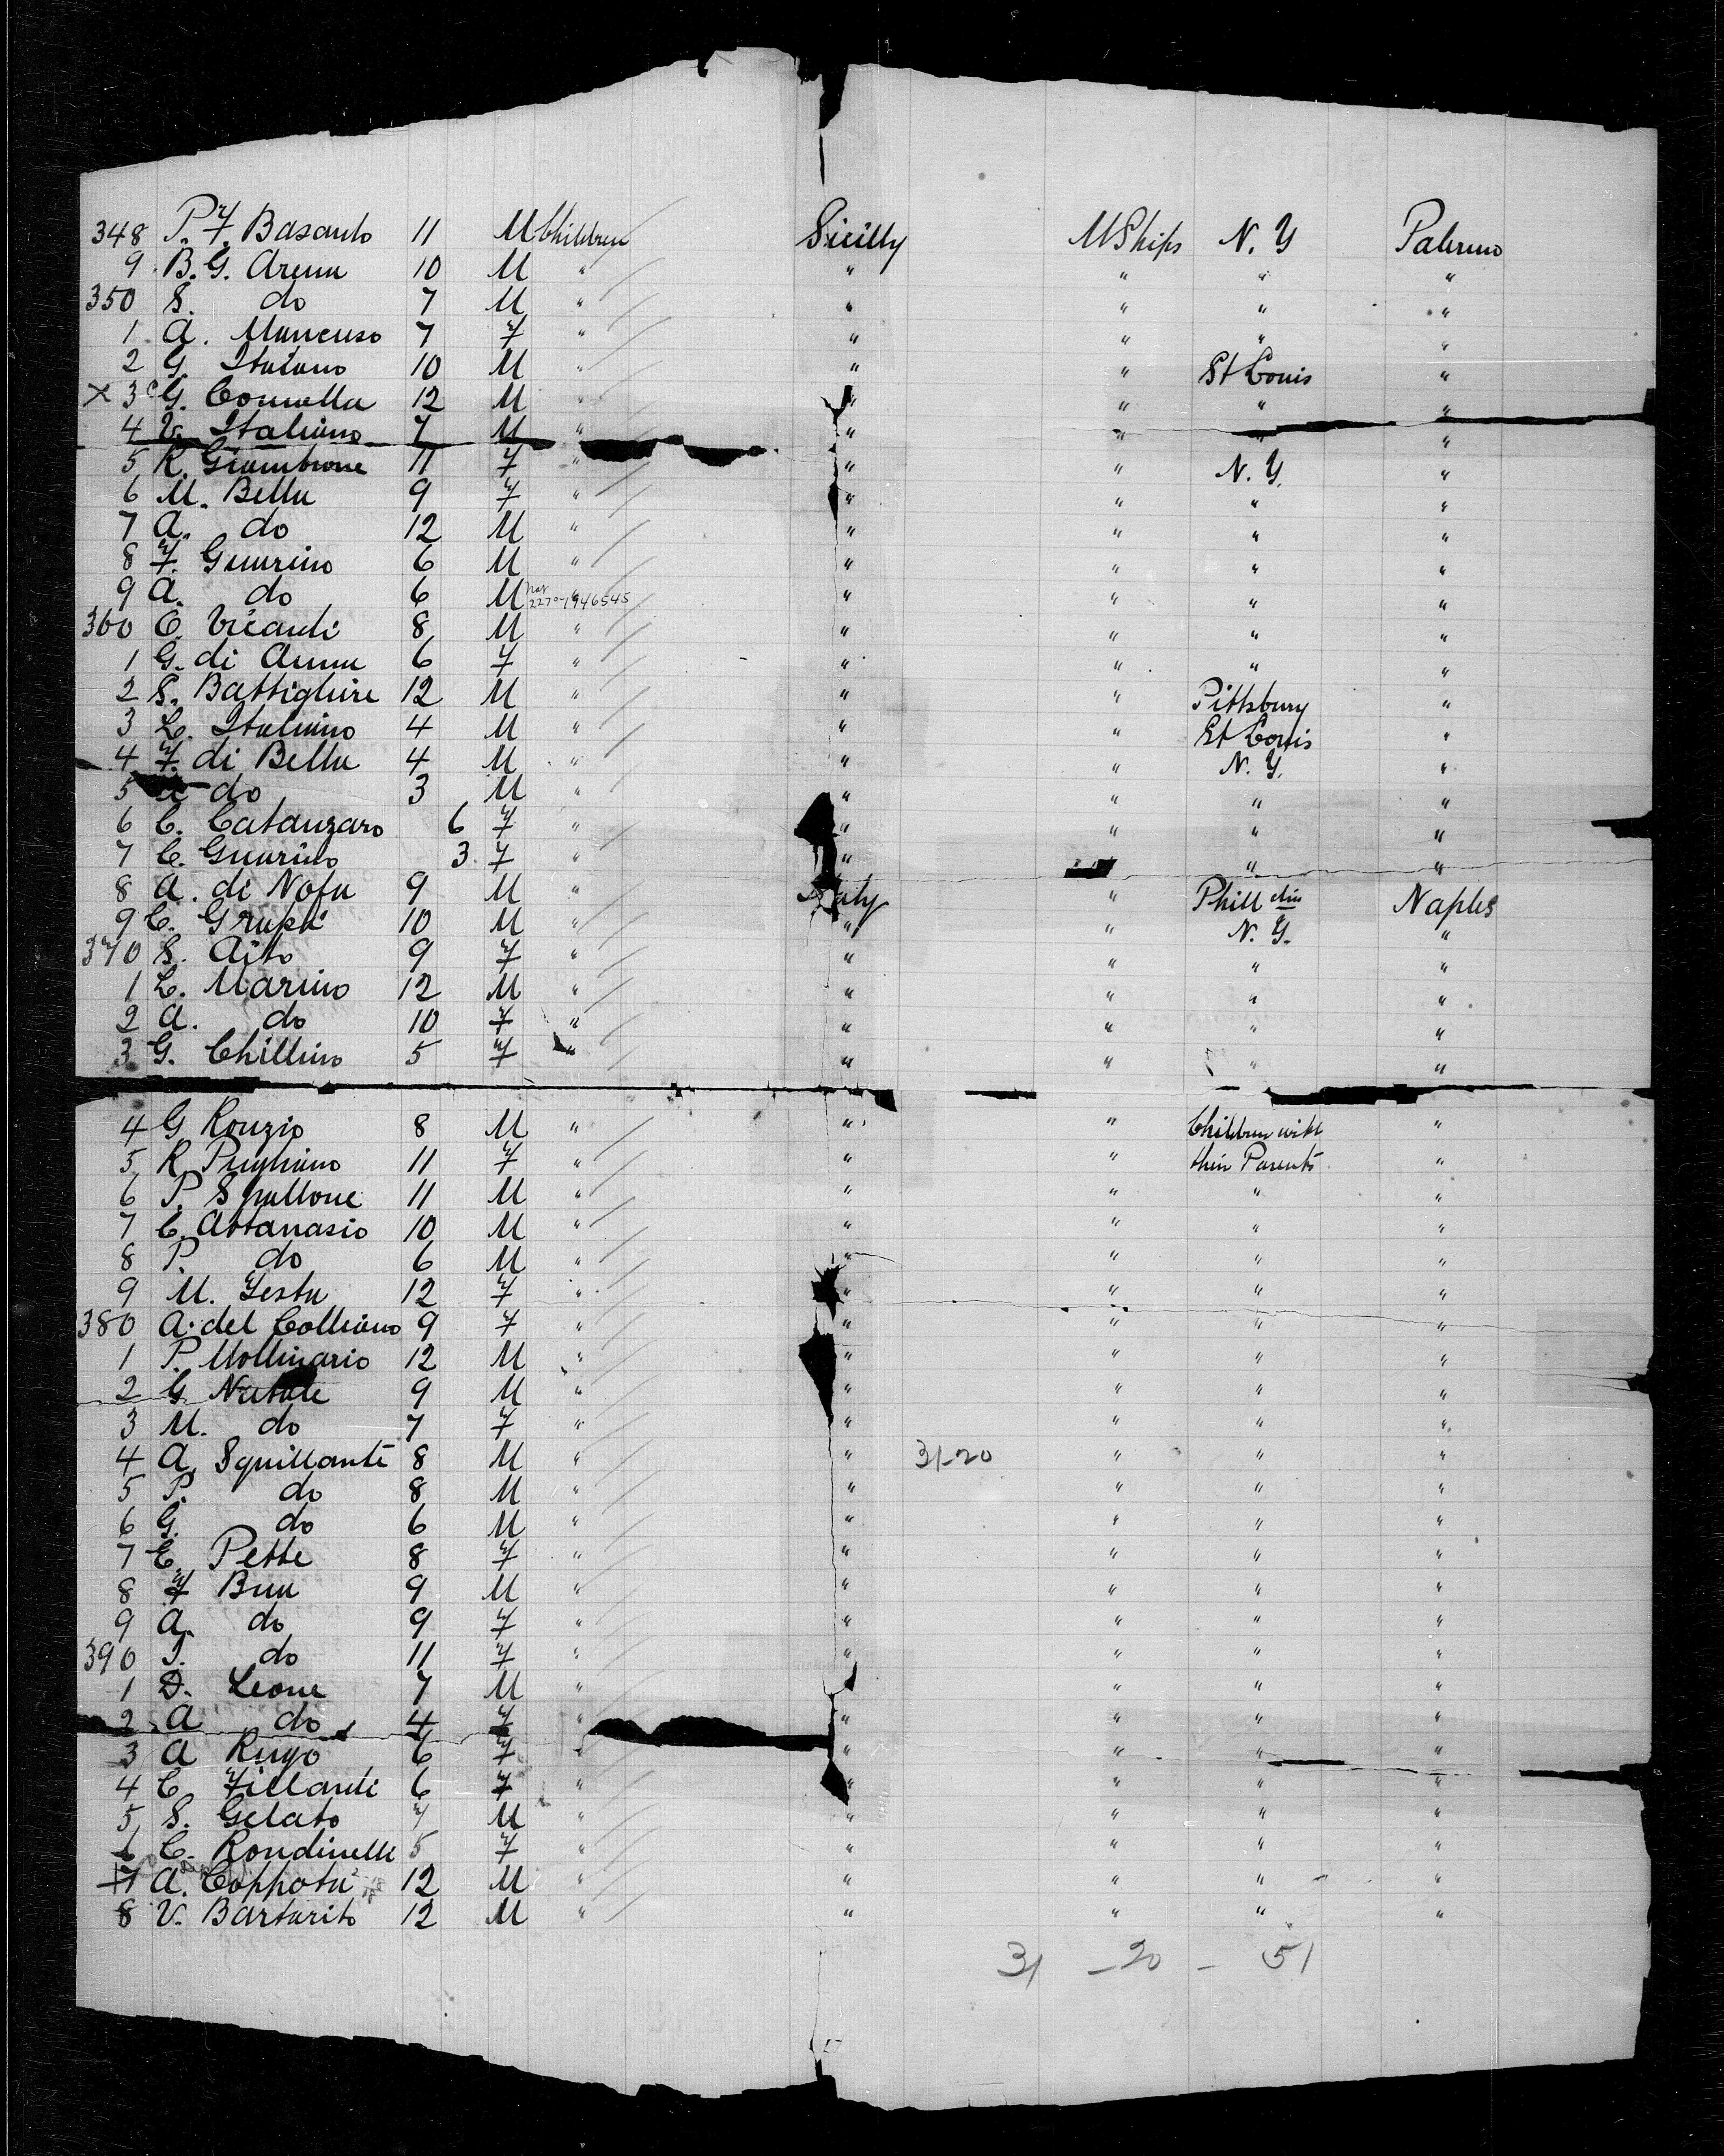 348 P. F. Basanto 11 M Children Sicilly U Ships N. Y Palermo
9 B. G. Arena 10 M " " " " "
350 S. do 7 M " " " " "
1 A. Mancuso 7 F " " " " "
2 G. Italiano 10 M " " " St Louis "
X 3 G. Connella 12 M " " " " "
4 V. Italiano 7 M " " " " "
5 R. Giambrone 11 F " " " N. Y. "
6 M. Bella 9 F " " " " "
7 A. do 12 M " " " " "
8 F. Guarino 6 M " " " " "
9 A. do 6 M 2270-1946545 " " " "
360 C. Vicardi 8 M " " " " "
1 G. di Anna 6 F " " " " "
2 S. Battighire 12 M " " " Pittsbury "
3 L. Italiano 4 M " " " St Louis "
4 F. di Bella 4 M " " " N. Y. "
5 do 3 M " " " " "
6 C. Catanzaro 6 F " " " " "
7 C. Guarino 3 F " " " "
8 A. di Nofa 9 M " Italy " Phill dia Naples
9 C. Grapa 10 M " " " N. Y. "
370 S. Aito 9 F " " " " "
1 L. Marino 12 M " " " " "
2 A. do 10 F " " " " "
3 G. Chillino 5 F " " " " "
4 G Ronzio 8 M " " " Children with "
5 R. Pugliano 11 F " " " their Parents "
6 P. Spallone 11 M " " " " "
7 C. Attanasio 10 M " " " " "
8 P. do 6 M " " " " "
9 M. Testa 12 F " " " " "
380 A. del Colliano 9 F " " " "
1 P. Mollinario 12 M " " " " "
2 G Natale 9 M " " " " "
3 M. do 7 F " " " " "
4 A. Squillante 8 M " " 31-20 " " "
5 P. do 8 M " " " " "
6 G. do 6 M " " " " "
7 C. Pette 8 F " " " " "
8 F Bua 9 M " " " " "
9 A. do 9 F " " " " "
390 I. do 11 F " " " " "
1 D. Leone 7 M " " " " "
2 A do 4 F " " " "
3 A Rugo 6 F " " " " "
4 C. Fillanti 6 F " " " " "
5 S. Gelato 7 M " " " " "
6 C. Rondinelli 5 F " " " " "
7 A. Coppota 12 M " " " " "
8 V. Bartarito 12 M " " " " "
31 - 20 - 51